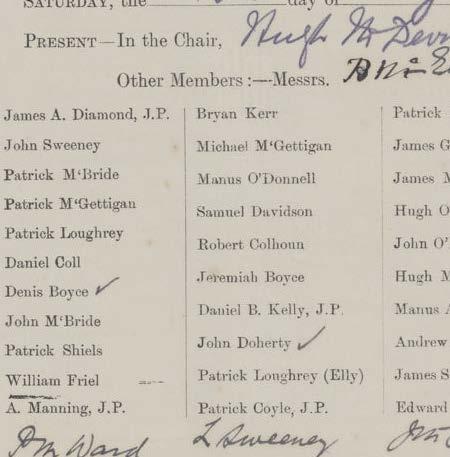 SATURDAY, the day of
PRESENT—In the Chair, Hugh McDev
Other Members :—Messrs.
James A. Diamond, J.P.
John Sweeney
Patrick M‘Bride
Patrick M‘Gettigan
Patrick Loughrey
Daniel Coll
Denis Boyce ✓
John M‘Bride
Patrick Shiels
William Friel
A. Manning, J.P.
Bryan Kerr
Michael M‘Gettigan
Manus O’Donnell
Samuel Davidson
Robert Colhoun
Jeremiah Boyce
Daniel B. Kelly, J.P.
John Doherty ✓
Patrick Loughrey (Elly)
Patrick Coyle, J.P.
Patrick
James G
James M
Hugh O
John O’
Hugh M
Manus
Andrew
James S
Edward
Ward
L Sweeney